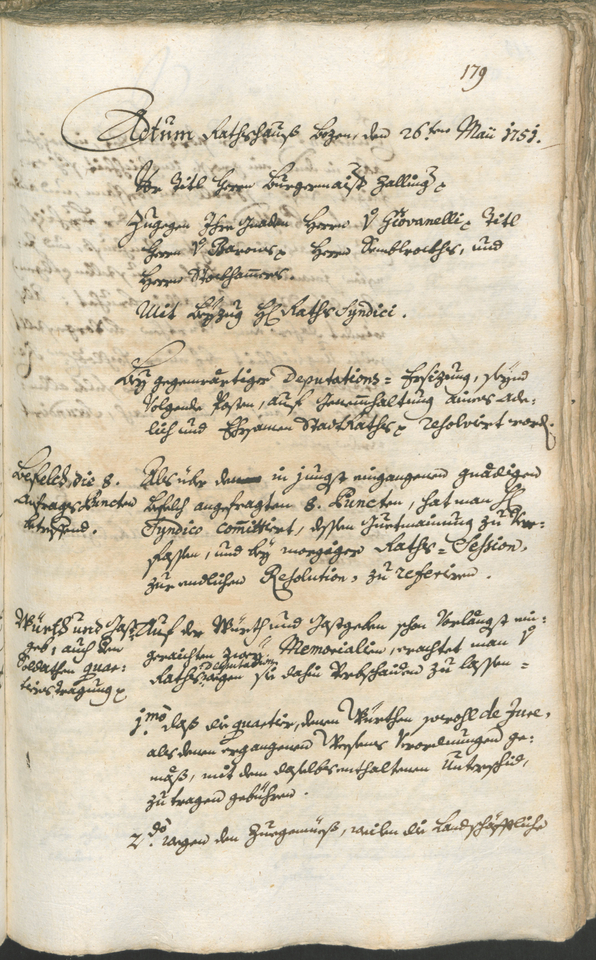 179
Actum Rathshauß Bozen, den 26.ten Maii 1751.
Vor Titl Herrn Burgermaist Zalling
Zugegen Ihro Gnaden Herrn V Giovanelli Titl
Herrn V Baronis Herrn Semblrockhs, und
Herrn Stockhamers.
Mit Beyzug H Raths Syndici.
Bey gegenwärtiger Deputations=Ersizung, seynd
volgende Posten, auf Genemhaltung aines Ade=
lich und Ehrsamen Stadt Raths resolvirt word.
Befelch, die 8.
Anfrags Puncten
betreffend.
Als über dem in jüngst eingangenen gnädigen
Befelch angefragten 8. Puncten, hat man H
Syndico committirt, dessen Guetmainung zu ver=
fassen, und bey morgiger Raths=Session,
zur endlichen Resolution, zu referiren.
Würth und Gast
geb, auch den
Soldathen quar=
tiers tragung
Auf der Würth und Gastgeben schon vorlängst ein=
geraichten zway Memorialien, erachtet man V
Raths wegen sie dahin verbschaiden zu lassen=
1.mo daß die quartier, denen Würthen sowohl de Jure,
als denen ergangenen Wesens Verordnungen ge=
mäß, mit dem daselbs enthaltenen Unterschid,
zu tragen gebühren.
2.do wegen den Zuegemüeß, weilen die Landschäfftliche